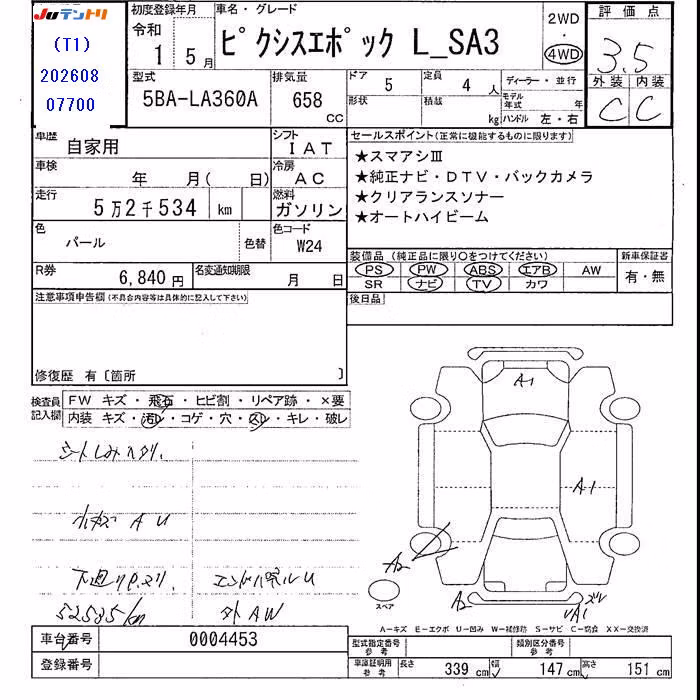 Juテントリ
(T1)
202608
07700
初度登録年月
令和
1 5月
車名・グレード
ピクシスエポック L_SA3
2WD
・
4WD
評価点
3.5
外装 内装
C C
型式
5BA-LA360A
排気量
658
CC
ドア
5
定員
4人
形状
積載
kg
ディーラー・並行
モデル年式 年
ハンドル 左・右
車歴
自家用
シフト
IAT
車検
年 月( 日)
冷房
AC
走行
5万2千534 km
燃料
ガソリン
色
パール
色替
色コード
W24
R券
6,840円
名変通知期限
月 日
セールスポイント(正常に機能するものに限ります)
★スマアシⅢ
★純正ナビ・DTV・バックカメラ
★クリアランスソナー
★オートハイビーム
装備品(純正品に限り○をつけてください)
PS PW ABS エアB AW
SR ナビ TV カワ
新車保証書
有・無
後日品
注意事項申告欄(不具合内容等は具体的に記入して下さい)
修復歴 有〔箇所 〕
検査員記入欄
FW キズ・飛石・ヒビ割・リペア跡・×要
内装 キズ・汚レ・コゲ・穴・スレ・キレ・破レ
シートしみヘタリ.
小キズ A U
下廻りP.スリ. エンドパネルU
52535km 外AW
A-1
A1
A2
スペア
A2
A1
ズレ
A-キズ E-エクボ U-凹み W-補修跡 S-サビ C-腐食 XX-交換済
車台番号
0004453
登録番号
型式指定番号
参考
類別区分番号
参考
車庫証明用
参考
長さ 339 cm 幅 147 cm 高さ 151 cm